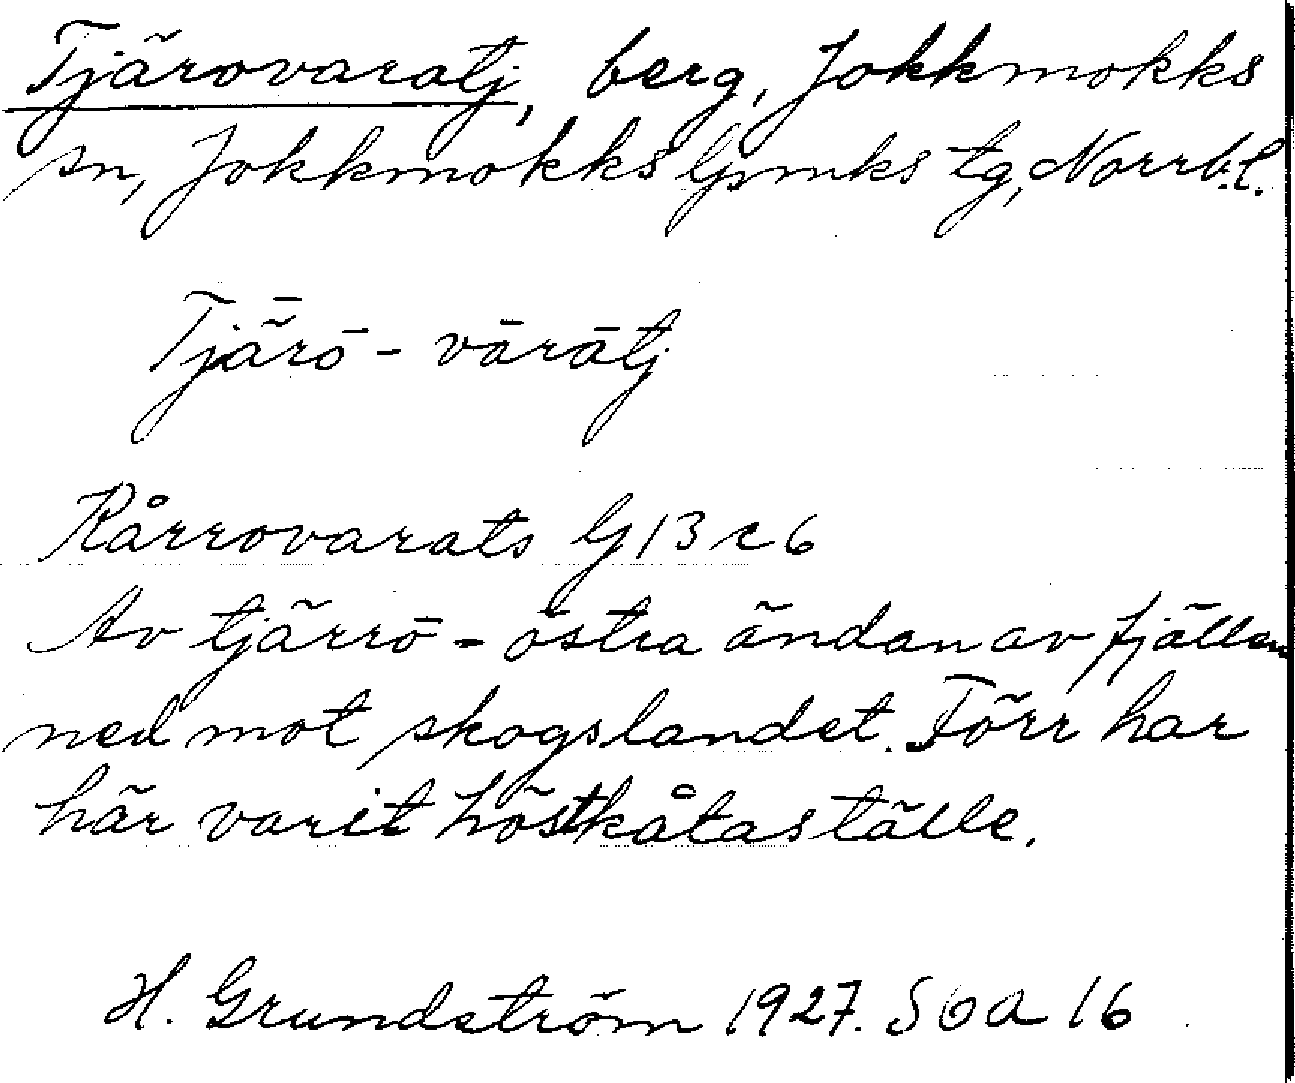 Tjärovaratj, berg, Jokkmokks
sn, Jokkmokks lpmks tg, Norrb.l.
Tjǟrō - vārātj
Kårrovarats lG 13 c 6
Av tjärrō - östra ändan av fjällen
ned mot skogslandet. Förr har
här varit höstkåtaställe.
H. Grundström 1927. S 6 a 16